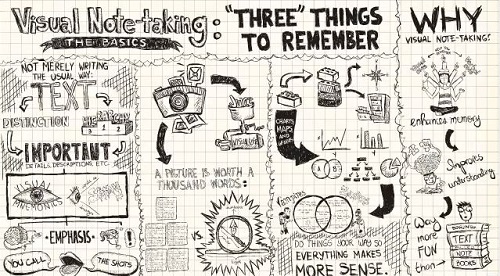 Visual Note-taking:
THE BASICS
"THREE" THINGS
TO REMEMBER
NOT MERELY WRITING
THE USUAL WAY:
TEXT
DISTINCTION
HIERARCHY
2 1 3
IMPORTANT
DETAILS, DESCRIPTIONS, ETC.
VISUAL
MNEMONICS
EMPHASIS
YOU CALL
THE SHOTS
A PICTURE IS WORTH A
THOUSAND WORDS:
VS.
CHARTS
MAPS
AND
A B
DO THINGS YOUR WAY SO
EVERYTHING MAKES
MORE SENSE.
WHY
VISUAL NOTE-TAKING?
enhances memory
Improves
understanding
Way
more
FUN
than
TEXT
NOTE
BOOKS